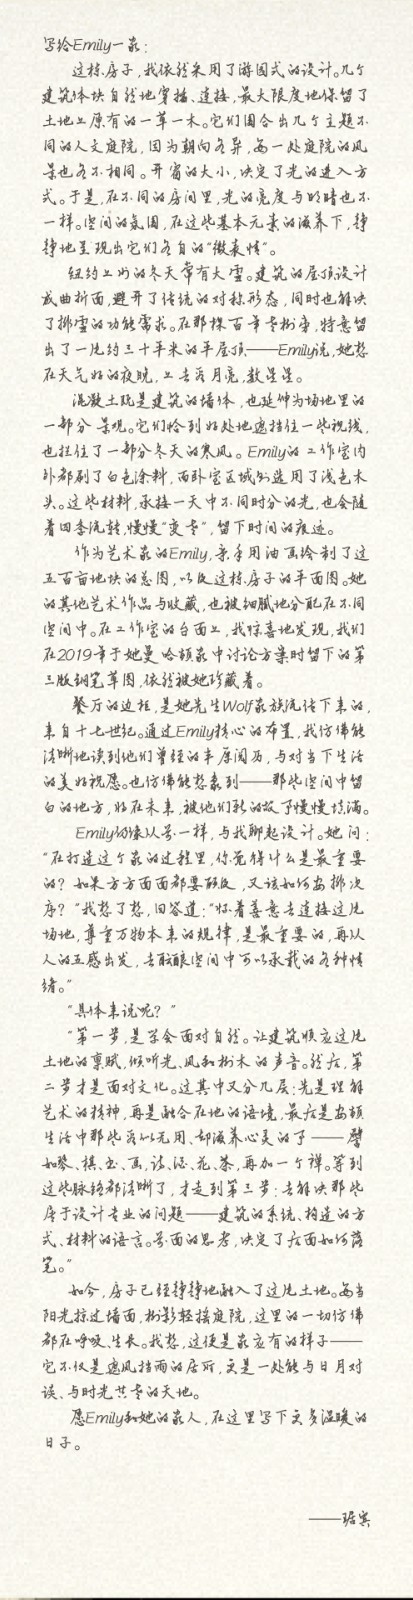 写给Emily一家：
这栋房子，我依然采用了游园式的设计。几个
建筑体块自然地穿插、连接，最大限度地保留了
土地上原有的一草一木。它们围合出几个主题不
同的人文庭院，因为朝向各异，每一处庭院的风
景也各不相同。开窗的大小，决定了光的进入方
式。于是，在不同的房间里，光的亮度与明暗也不
一样。空间的氛围，在这些基本元素的滋养下，静
静地呈现出它们各自的“微表情”。
纽约上州的冬天常有大雪。建筑的屋顶设计
成曲折面，避开了传统的对称形态，同时也解决
了排雪的功能需求。在那棵百年老树旁，特意留
出了一片约三十平米的平屋顶——Emily说，她想
在天气好的夜晚，上去看月亮，数星星。
混凝土既是建筑的墙体，也延伸为场地里的
一部分景观。它们恰到好处地遮挡住一些视线，
也挡住了一部分冬天的寒风。Emily的工作室内
外都刷了白色涂料，而卧室区域则选用了浅色木
头。这些材料，承接一天中不同时分的光，也会随
着四季流转，慢慢“变老”，留下时间的痕迹。
作为艺术家的Emily，亲手用油画绘制了这
五百亩地块的总图，以及这栋房子的平面图。她
的其他艺术作品与收藏，也被细腻地分配在不同
空间中。在工作室的台面上，我惊喜地发现，我们
在2019年于她曼哈顿家中讨论方案时留下的第
三版钢笔草图，依然被她珍藏着。
餐厅的边柜，是她先生Wolf家族流传下来的，
来自十七世纪。通过Emily精心的布置，我仿佛能
清晰地读到他们曾经的丰厚阅历，与对当下生活
的美好祝愿。也仿佛能想象到——那些空间中留
白的地方，将在未来，被他们新的故事慢慢填满。
Emily仍像从前一样，与我聊起设计。她问：
“在打造这个家的过程里，你觉得什么是最重要
的？如果方方面面都要顾及，又该如何安排次
序？”我想了想，回答道：“怀着善意去连接这片
场地，尊重万物本来的规律，是最重要的，再以
人的五感出发，去酝酿空间中可以承载的各种情
绪。”
“具体来说呢？”
“第一步，是学会面对自然。让建筑顺应这片
土地的禀赋，倾听光、风和树木的声音。然后，第
二步才是面对文化。这其中又分几层：先是理解
艺术的精神，再是融合在地的语境，最后是安顿
生活中那些看似无用、却滋养心灵的事——譬
如琴、棋、书、画、诗、酒、花、茶，再加一个禅。等到
这些脉络都清晰了，才走到第三步：去解决那些
属于设计专业的问题——建筑的系统、构造的方
式、材料的语言。前面的思考，决定了后面如何落
笔。”
如今，房子已经静静地融入了这片土地。每当
阳光掠过墙面，树影轻摇庭院，这里的一切仿佛
都在呼吸、生长。我想，这便是家应有的样子——
它不仅是遮风挡雨的居所，更是一处能与日月对
谈、与时光共老的天地。
愿Emily和她的家人，在这里写下更多温暖的
日子。
——琚宾